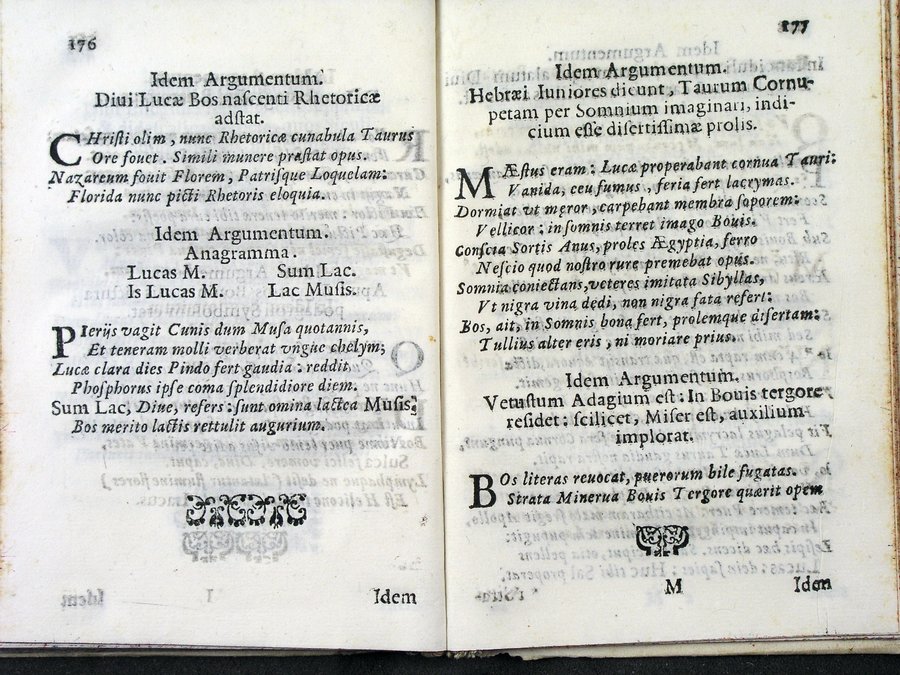 176
Idem Argumentum.
Diui Lucæ Bos nascenti Rhetoricæ
adstat.
CHristi olim, nunc Rhetoricæ cunabula Taurus
Ore fouet. Simili munere præstat opus.
Nazareum fouit Florem, Patrisque Loquelam:
Florida nunc picti Rhetoris eloquia.
Idem Argumentum.
Anagramma.
Lucas M. Sum Lac.
Is Lucas M. Lac Musis.
PIerijs vagit Cunis dum Musa quotannis,
Et teneram molli verberat vngue chelym;
Lucæ clara dies Pindo fert gaudia: reddit
Phosphorus ipse coma splendidiore diem.
Sum Lac, Diue, refers: sunt omina lactea Musis:
Bos merito lactis rettulit augurium.
Idem
177
Idem Argumentum.
Hebræi Iuniores dicunt, Taurum Cornu-
petam per Somnium imaginari, indi-
cium esse disertissimæ prolis.
MÆstus eram: Lucæ properabant cornua Tauri:
Vanida, ceu fumus, feria fert lacrymas.
Dormiat vt mœror, carpebant membra soporem:
Vellicor: in somnis terret imago Bouis.
Conscia Sortis Anus, proles Ægyptia, ferro
Nescio quod nostro rure premebat opus.
Somnia coniectans, veteres imitata Sibyllas,
Vt nigra vina dedi, non nigra fata refert:
Bos, ait, in Somnis bona fert, prolemque disertam:
Tullius alter eris, ni moriare prius.
Idem Argumentum.
Vetustum Adagium est: In Bouis tergore
residet: scilicet, Miser est, auxilium
implorat.
BOs literas reuocat, puerorum bile fugatas.
Strata Minerua Bouis Tergore quærit opem
M Idem